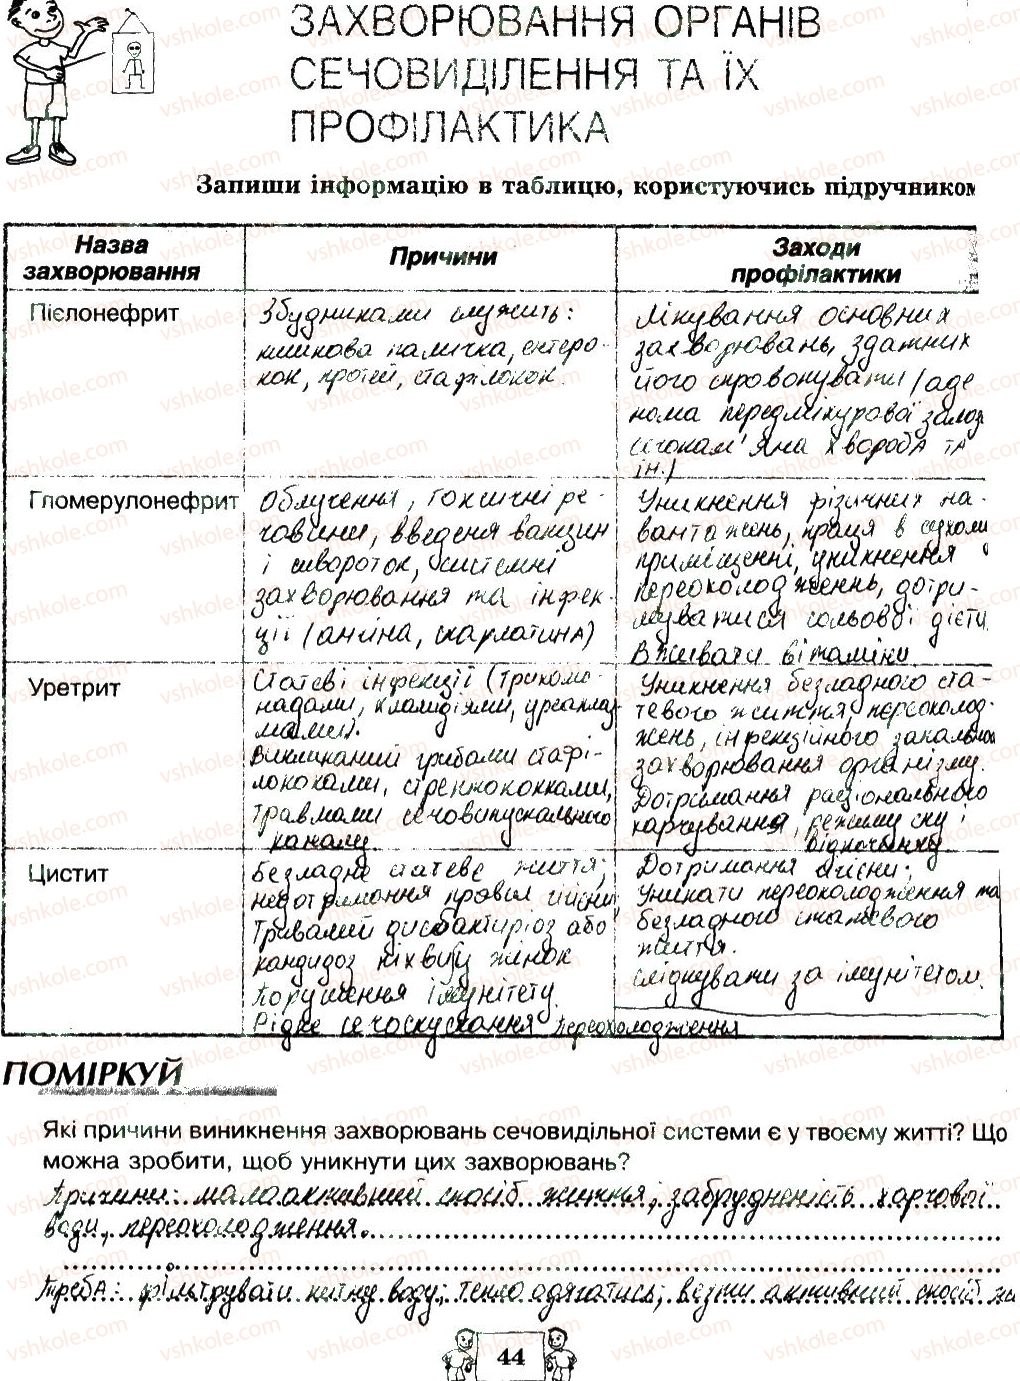 ЗАХВОРЮВАННЯ ОРГАНІВ
СЕЧОВИДІЛЕННЯ ТА ЇХ
ПРОФІЛАКТИКА
Запиши інформацію в таблицю, користуючись підручником
Назва
захворювання
Причини
Заходи
профілактики
Пієлонефрит
Збудниками служить:
кишкова паличка, ентеро-
кок, протей, стафілокок.
Лікування основних
захворювань, здатних
його спровокувати (аде
нома передміхурової залоз
сечокам'яна хвороба та
ін.)
Гломерулонефрит
Облучення, токсичні ре-
човини, введеня вакцин
і сивороток, системні
захворювання та інфек-
ції (ангіна, скарлатина)
Уникнення фізичних на-
вантажень, праця в сухому
приміщенні, уникнення
переохолодженнь, дотри-
муватися сольової дієти.
Вживати вітаміни
Уретрит
Статеві інфекції (трихомо-
надами, хламідіями, уреаплаз
мами).
Викликаний грибами стафі-
лококами, стрептококками,
травмами сечовипускального
каналу
Уникнення безладного ста-
тевого життя, переохолод-
жень, інфекційного запальном
захворювання організму.
Дотримання раціонального
харчування, режиму сну і
відпочинку
Цистит
Безладне статеве життя;
недотримання правіл гігієни
Тривалий дисбактиріоз або
кандидоз піхви у жінок
Порушення імунітету.
Рідке сечоскускання переохолодження
Дотримання гігієни;
Уникати переохолодження та
безладного статевого
життя.
Слідкувати за імунітетом.
ПОМІРКУЙ
Які причини виникнення захворювань сечовидільної системи є у твоєму житті? Що
можна зробити, щоб уникнути цих захворювань?
Причини: малоактивний спосіб життя; забрудненість харчової
води, переохолодження.
Треба: фільтрувати питну воду; тепло одягатись; вести активний спосіб жи
44
vshkole.com